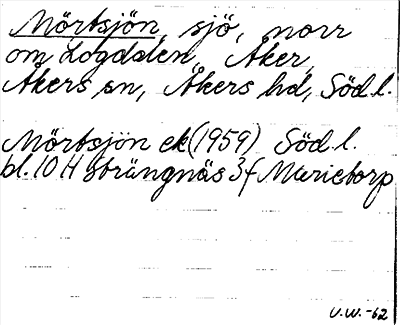 Mörtsjön, sjö, norr
om Logdalen, Åker,
Åkers sn, Åkers hd, Söd.l.
Mörtsjön ek (1959) Söd.l.
bl. 10 H Strängnäs 3f Marietorp
U.W.-62